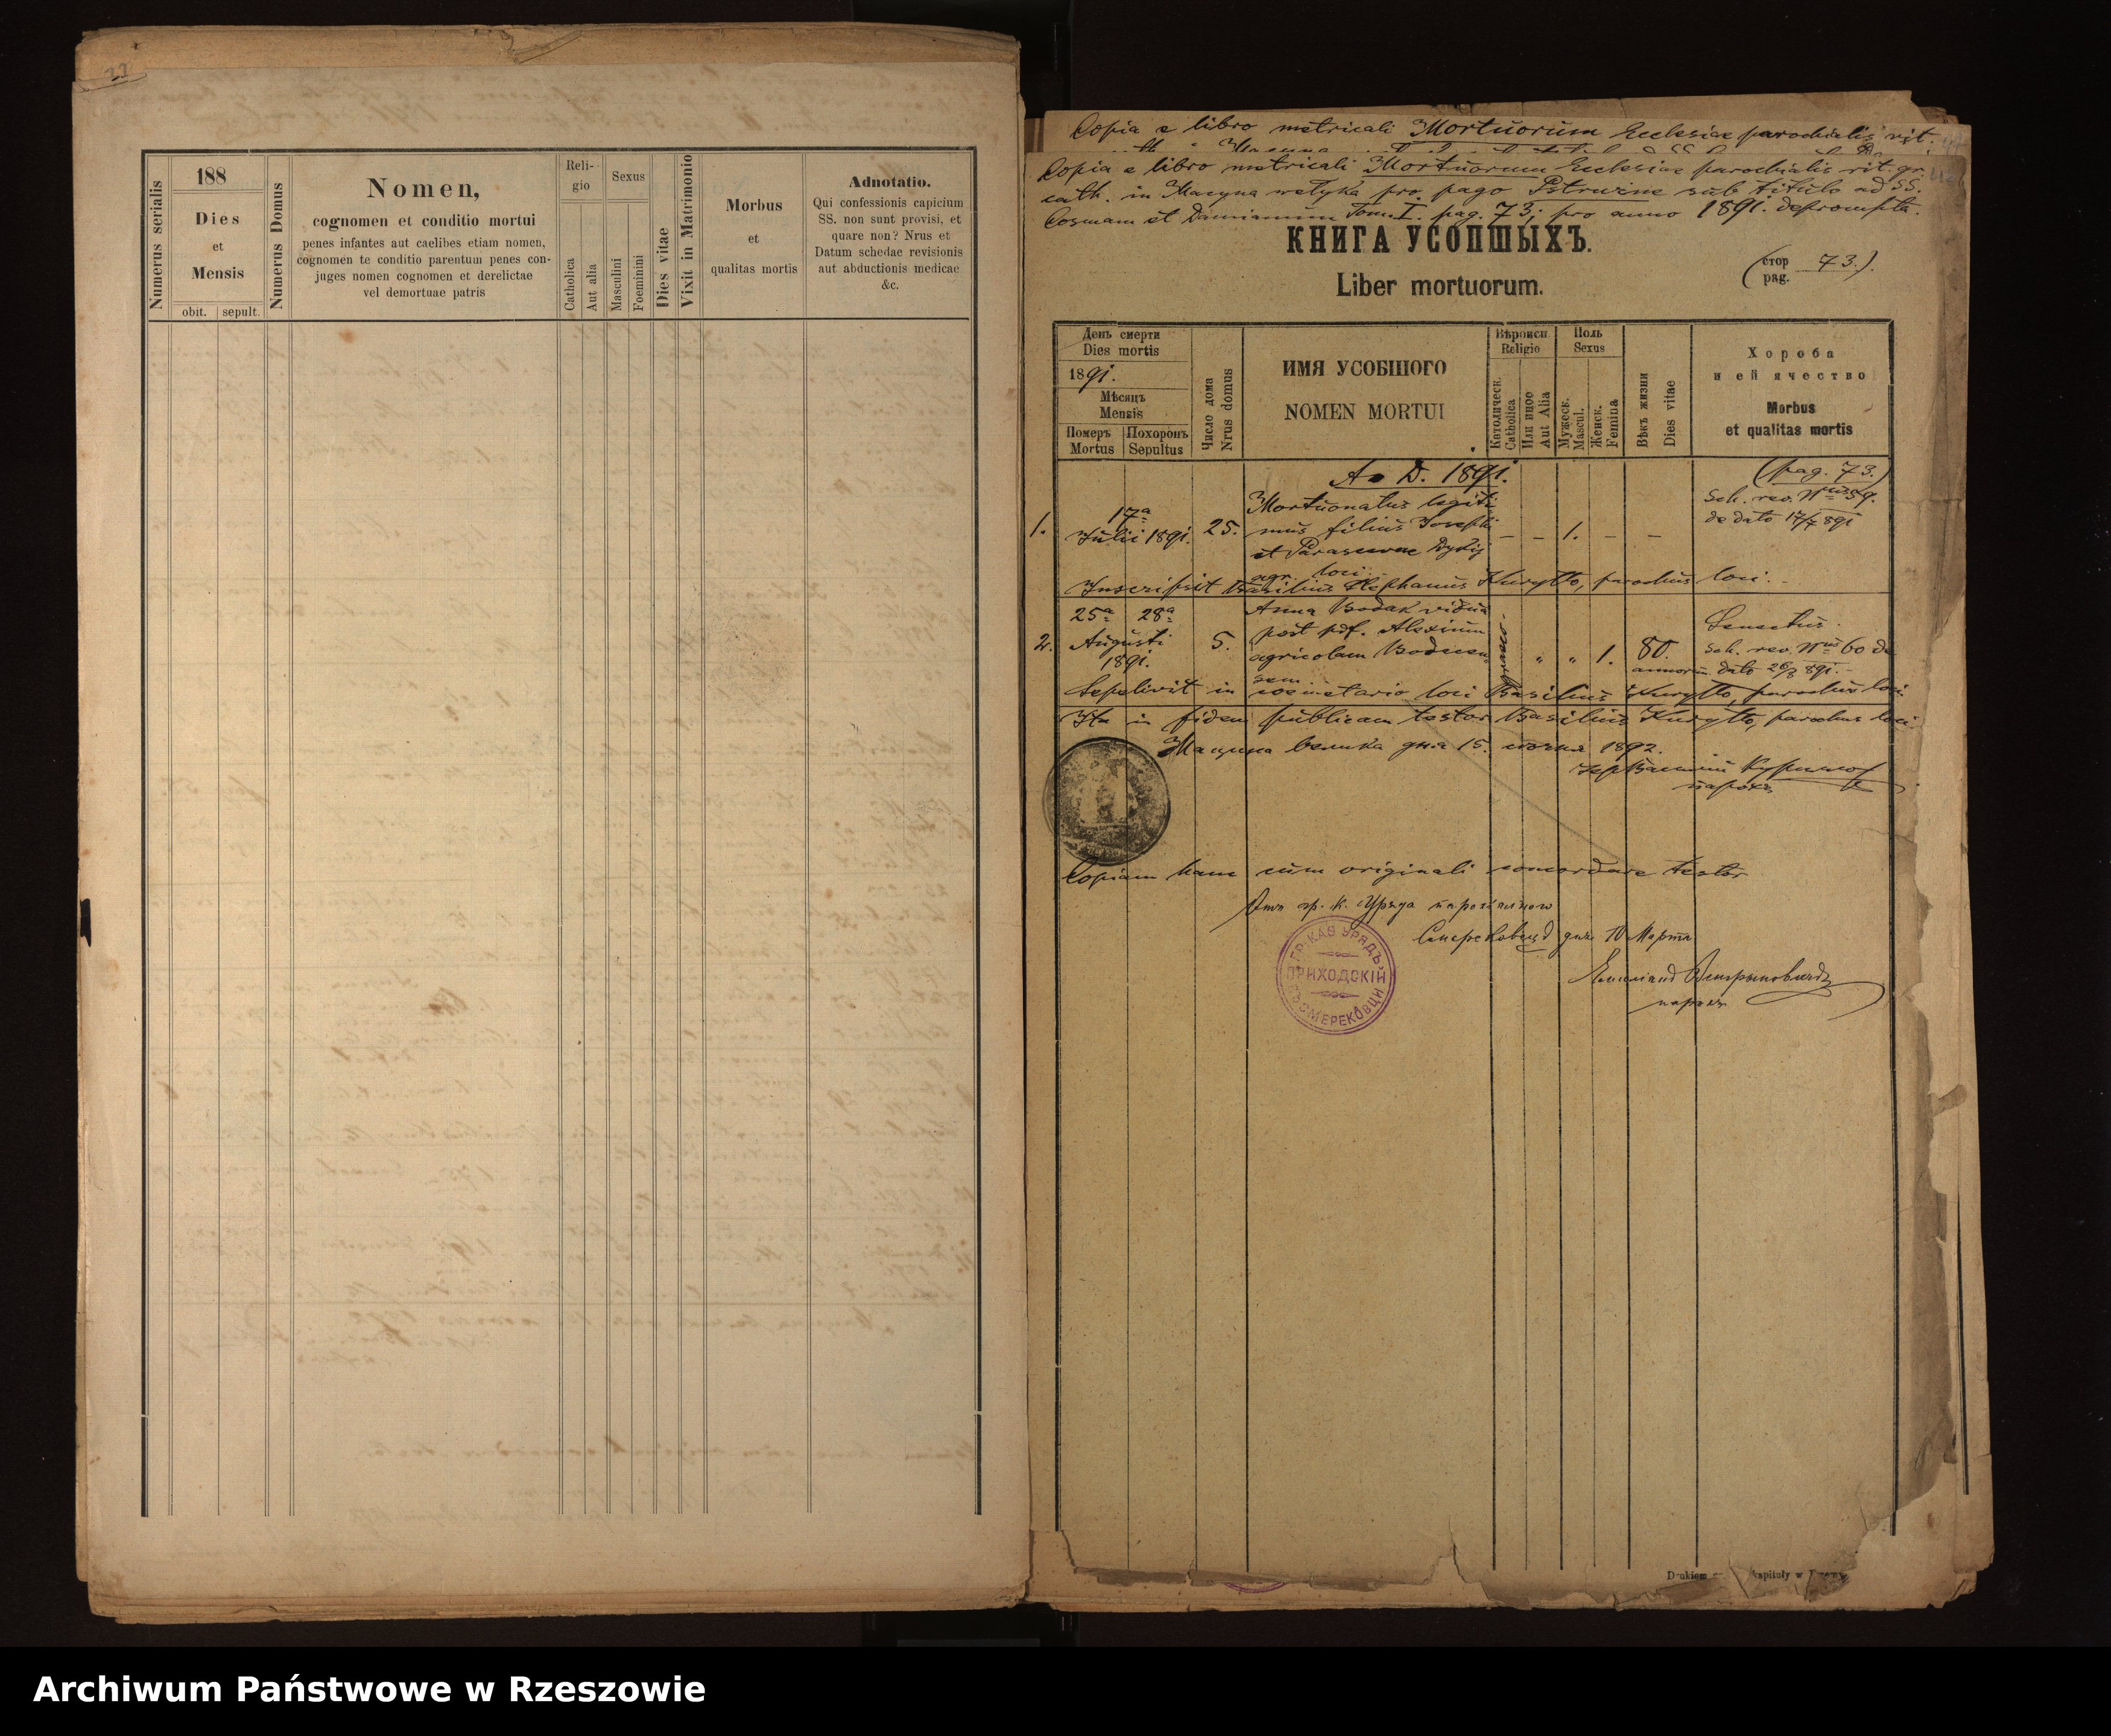 22
Numerus serialis
188
Dies
et
Mensis
obit. sepult.
Numerus Domus
Nomen,
cognomen et conditio mortui
penes infantes aut caelibes etiam nomen,
cognomen te conditio parentum penes con-
juges nomen cognomen et derelictae
vel demortuae patris
Reli-
gio
Catholica
Aut alia
Sexus
Masculini
Foeminini
Dies vitae
Vixit in Matrimonio
Morbus
et
qualitas mortis
Adnotatio.
Qui confessionis capicium
SS. non sunt provisi, et
quare non? Nrus et
Datum schedae revisionis
aut abductionis medicae
&c.
Copia e libro metricali Mortuorum Ecclesiae parochialis rit.
Copia e libro metricali Mortuorum Ecclesiae parochialis rit. gr.
cath. in Macyna welyka pro pago Pstrużne sub titulo ad SS.
Cosmam et Damianum Tom. I. pag. 73; pro anno 1891. deprompta.
КНИГА УСОПШЫХЪ.
Liber mortuorum.
(стор
pag. 73.).
День смерти
Dies mortis
1891.
Мѣсяцъ
Mensis
Померъ Похоронъ
Mortus Sepultus
Число дома
Nrus domus
ИМЯ УСОБШОГО
NOMEN MORTUI
Вѣроисп.
Religio
Католическ.
Catholica
Или иное
Aut Alia
Поль
Sexus
Мужеск.
Mascul.
Женск.
Femina
Вѣкъ жизни
Dies vitae
Хороба
и ей ячество
Morbus
et qualitas mortis
Ao D. 1891. (pag. 73.)
1. 17a Julii 1891. 25. Mortuonatus legiti-
mus filius Josephi
et Parascevae
agr. loci. – – 1. – –
Sch. rev. Nrus 59.
de dato 17/7 891
Inscripsit Basilius Stephanus Kuryłło, parochus loci. –
2. 25a 28a
Augusti
1891. 5. Anna Bodak vidua
post pdf. Alexium
agricolam
" " 1. 80.
annorum
Senectus.
Sch. rev. Nrus 60 de
dato 26/8 891. –
Sepelivit in coemetario loci Basilius Kuryłło, parochus loci.
Ita in fidem publicam testor Basilius Kuryłło, parochus loci.
Мацина велика дня 15. 1892.
парохъ
Copiam hanc cum originali concordare testor
Отъ гр. к. Уряда парохіяльного
дня 10 Марта
ГР. КАѲ УРЯДЪ
ПРИХОДСКІЙ
ВЪ СМЕРЕКОВЦИ
парохъ
Archiwum Państwowe w Rzeszowie